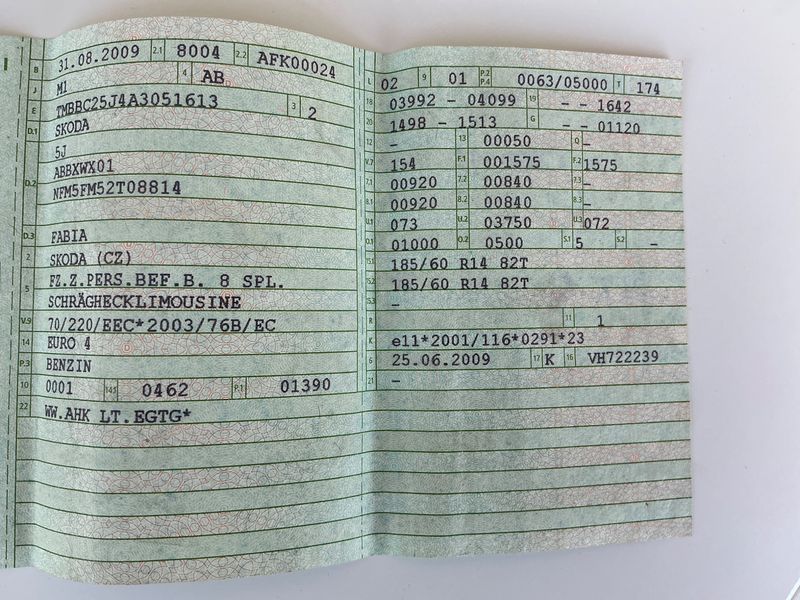 B 31.08.2009 2.1 8004 2.2 AFK00024
J M1 4 AB
E TMBBC25J4A3051613 3 2
D.1 SKODA
5J
D.2 ABBXWX01
NFM5FM52T08814
D.3 FABIA
2 SKODA (CZ)
5 FZ.Z.PERS.BEF.B. 8 SPL.
SCHRÄGHECKLIMOUSINE
V.9 70/220/EEC*2003/76B/EC
14 EURO 4
P.3 BENZIN
10 0001 14.1 0462 P.1 01390
22 WW.AHK LT.EGTG*
L 02 9 01 P.2 P.4 0063/05000 T 174
18 03992 - 04099 19 - - 1642
20 1498 - 1513 G - - 01120
12 - 13 00050 Q -
V.7 154 F.1 001575 F.2 1575
7.1 00920 7.2 00840 7.3 -
8.1 00920 8.2 00840 8.3 -
U.1 073 U.2 03750 U.3 072
O.1 01000 O.2 0500 S.1 5 S.2 -
15.1 185/60 R14 82T
15.2 185/60 R14 82T
15.3 -
R 11 1
K e11*2001/116*0291*23
6 25.06.2009 17 K 16 VH722239
21 -